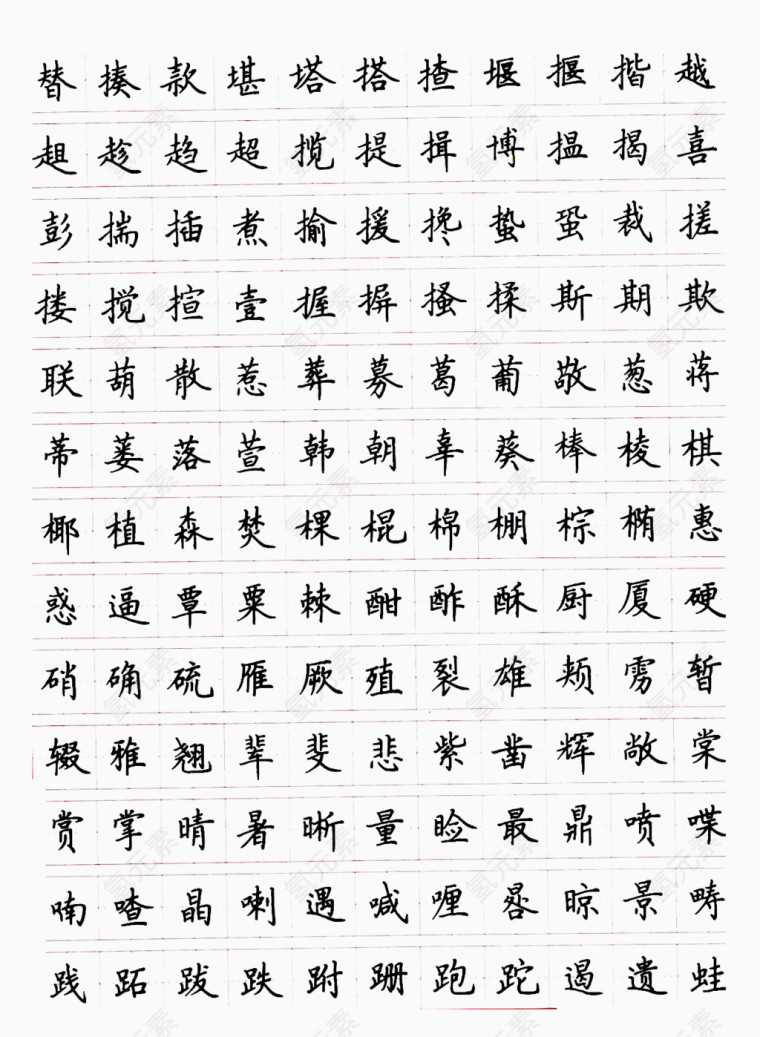 替揍款堪塔搭揸堰揠揩越
趄趁趋超揽提揖博揾揭喜
彭揣插煮揄援搀蛰蛩裁搓
搂搅揎壹握摒搔揉斯期欺
联葫散惹葬募葛葡敬葱蒋
蒂蒌落萱韩朝辜葵棒棱棋
椰植森焚棵棍棉棚棕椭惠
惑逼覃粟棘酣酢酥厨厦硬
硝确硫雁厥殖裂雄颊雳暂
辍雅翘辈斐悲紫凿辉敞棠
赏掌晴暑晰量睑最鼎喷喋
喃喳晶喇遇喊喱晷晾景畴
践跖跋跌跗跚跑跎遏遗蛙
氢元素